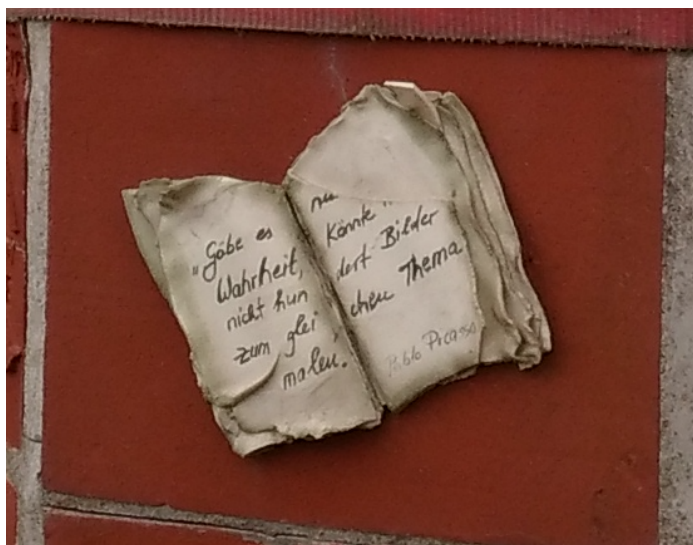 "Gäbe es
Wahrheit,
nicht hun
zum glei
malen.
nu
könnte
dert Bilder
chen Thema
Pablo Picasso